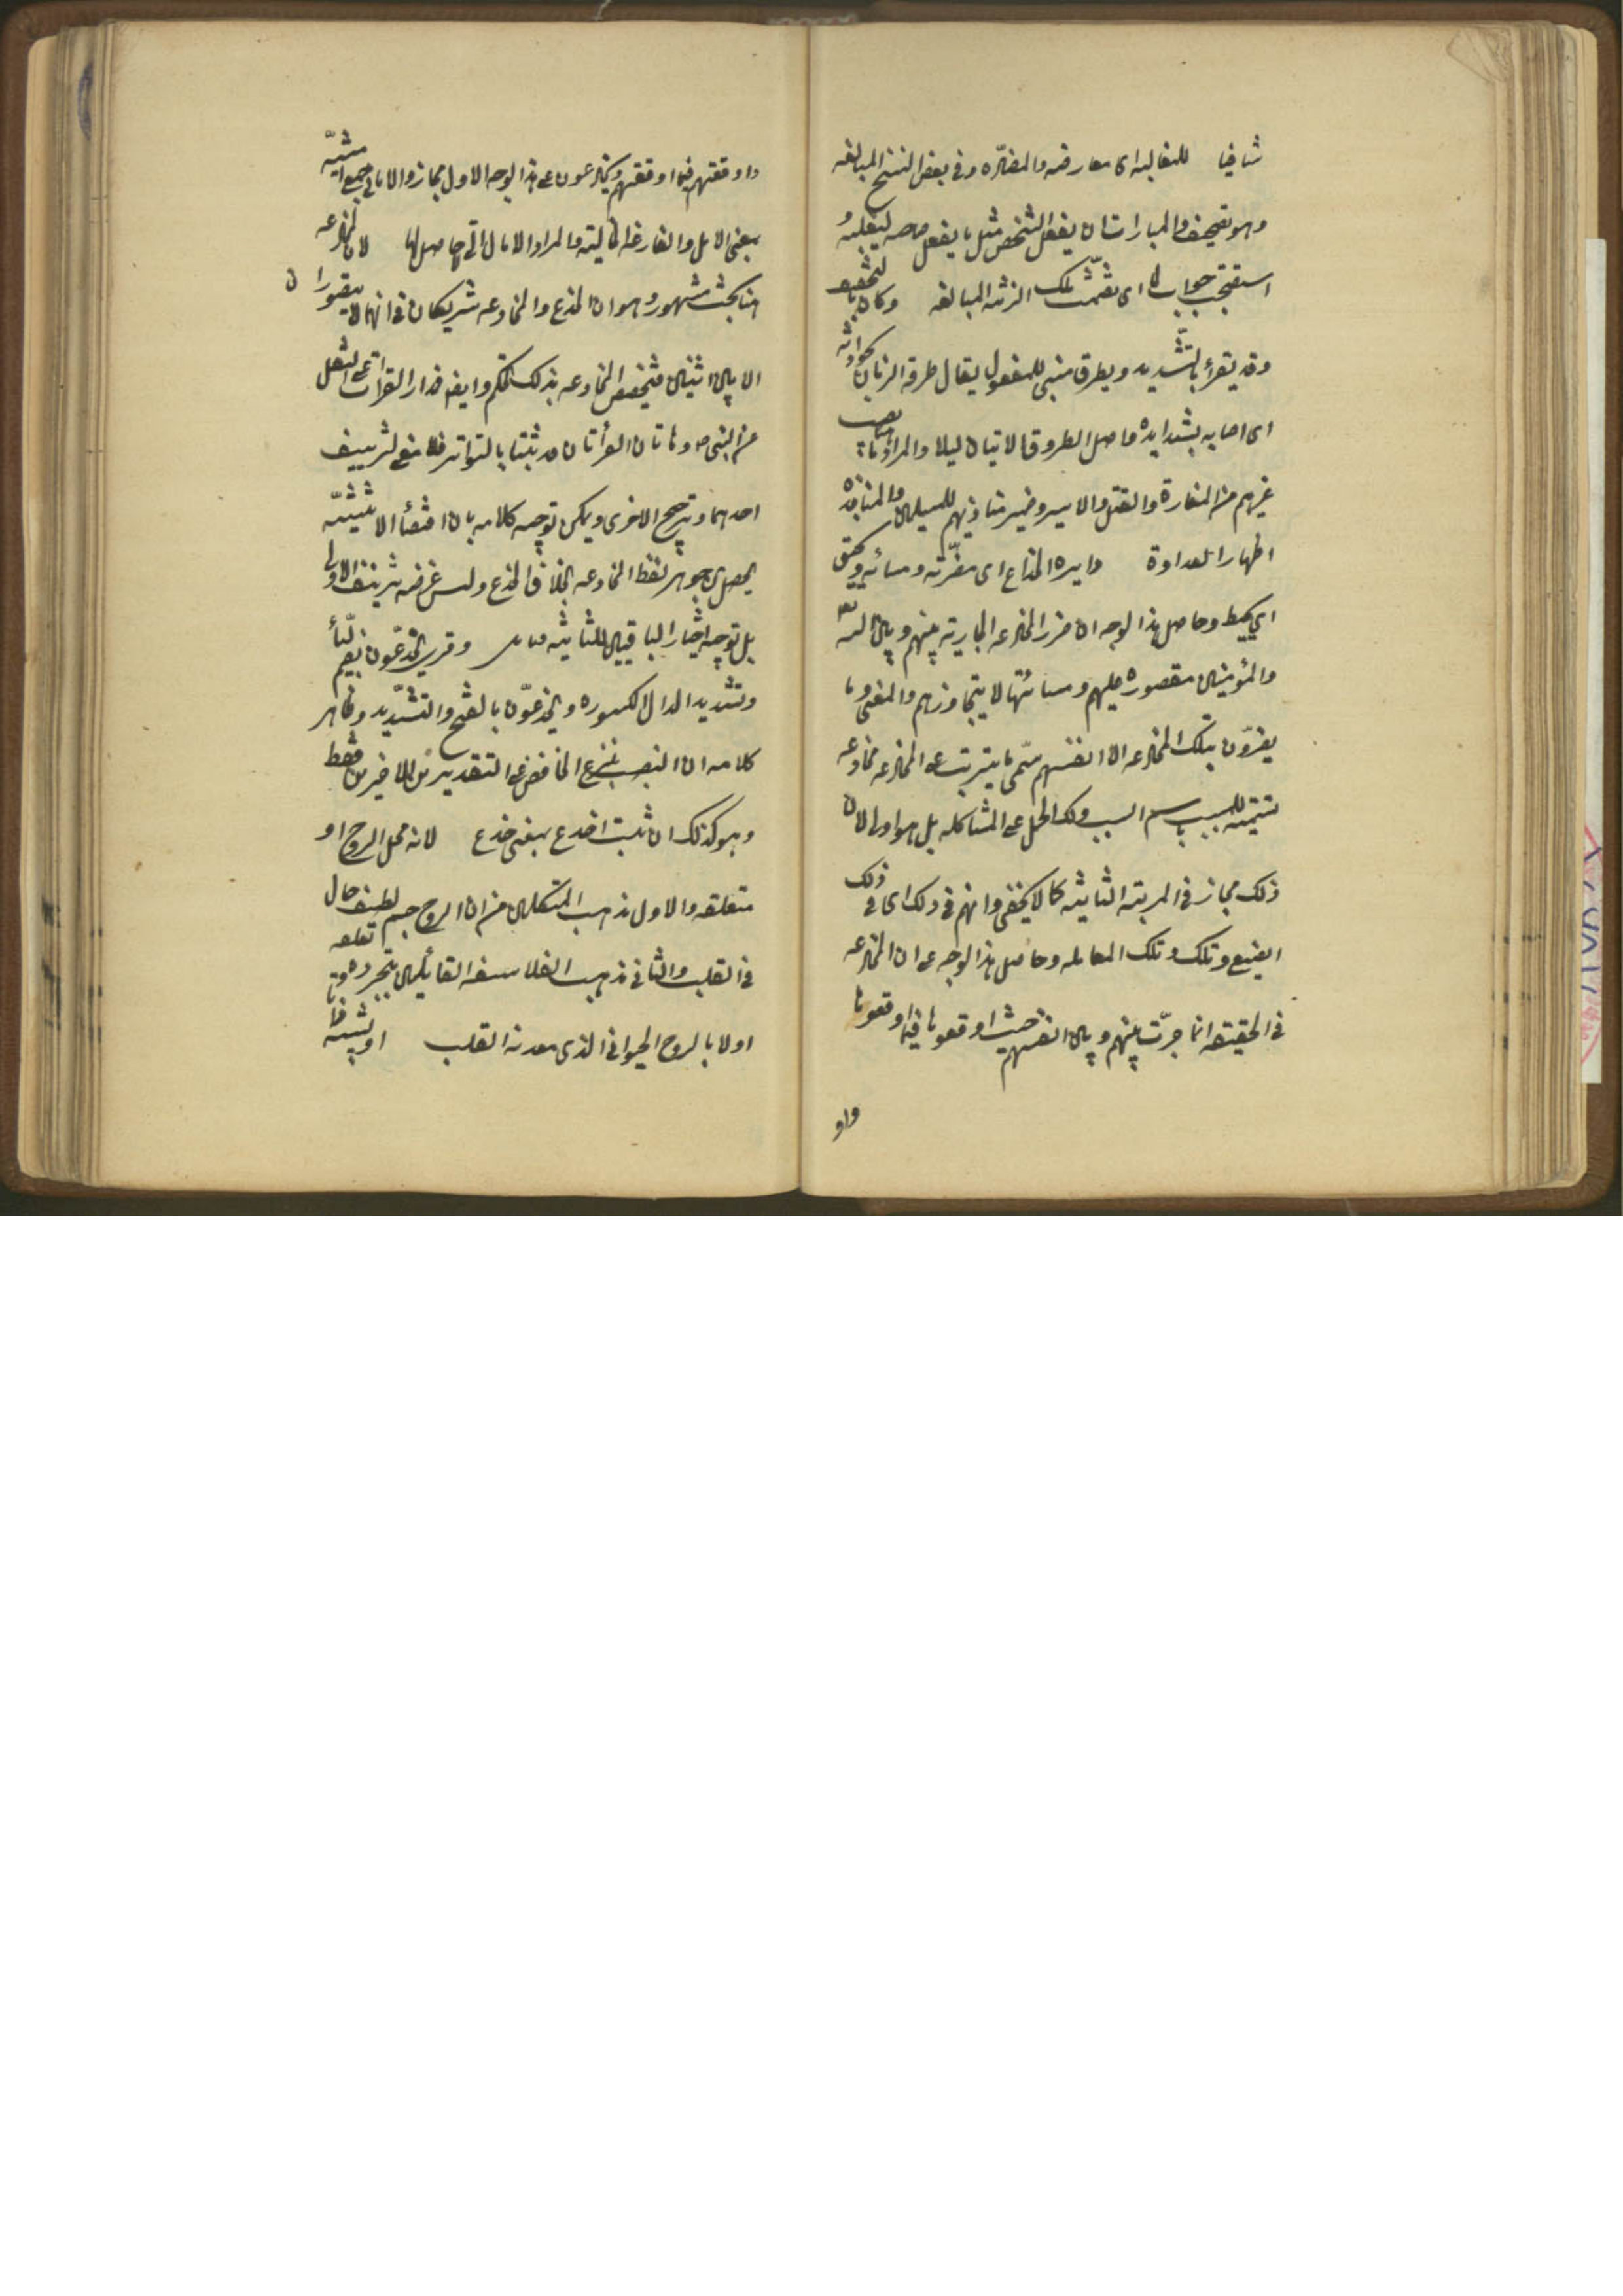 شافيا للمغالبه اى معارضه والمضارّه وفى بعض النسخ المبالغه
وهو تصحيف والمبارات ان يفعل الشخص مثل ما يفعل صاحبه ليغلبه و
استصحب جواب لما اى تضمنت تلك الزنه المبالغه وكان بالتخفيف
وقد يقرء بالتشديد ويطرق مبنى للمفعول يقال طرقه الزمان بحوادثه
اى اصابه بشدايده واصل الطروق الاتيان ليلا والمراد ما يصيب
غيرهم من الغارة والقتل والاسر وضمير منابذيهم للمسلمين والمنابذه
اظهار العداوة دايره الخداع اى مضرّته ومسائه ويحيق
اى يحيط وحاصل هذا الوجه ان ضرر المخادعه الجاريه بينهم وبين الله
والمؤمنين مقصوره عليهم ومسائتها لا يتجاوزهم والمعنى وما
يضرّون بتلك المخادعه الا انفسهم سمّى ما يترتب على المخادعه مخادعه
تسميه للمسبب باسم السبب ولك الحمل على المشاكله بل هو اولى لان
ذلك مجاز فى المرتبه الثانيه كما لا يخفى وانهم فى ذلك اى فى ذلك
الصنيع وتلك المعامله وحاصل هذا الوجه على ان المخادعه
فى الحقيقه انما جرت بينهم وبين انفسهم حيث اوقعوها فيما اوقعوها
واو
واوقعتهم فيما اوقعتهم ويخادعون على هذا الوجه الاول مجاز والامانى جمع امنيّه
بمعنى الامل والفارغه الخاليه والمراد الامال التى لا حاصل لها لان المخادعه
هنا بحث مشهور وهو ان الخدع والمخادعه شريكان فى انهما لا يتصوران
الا بين اثنين فتخصيص المخادعه بذلك تحكم وايضا فمدار القراءات على النقل
عن النبى ص وهاتان القرأتان قد ثبتتا بالتواتر فلا معنى لتزييف
احدهما وترجيح الاخرى ويمكن توجيه كلامه بان اقتضأ الاثنينيّه
يحصل من جوهر لفظ المخادعه بخلاف الخدع وليس غرضه تزييف الاولى
بل توجيه اختيار الباقين للثانيه فتامل وقرى يخدّعون بضم اليأ
وتشديد الدال المكسوره ويخدّعون بالفتح والتشديد وظاهر
كلامه ان النصب بنزع الخافض على التقديرين الاخيرين فقط
وهو كذلك ان ثبت اخدع بمعنى خدع لانه محل الروح او
متعلقه والاول مذهب المتكلمين من ان الروح جسم لطيف حال
فى القلب والثانى مذهب الفلاسفه القائلين بتجرده وتعلقه
اولا بالروح الحيوانى الذى معدنه القلب او تشبيه